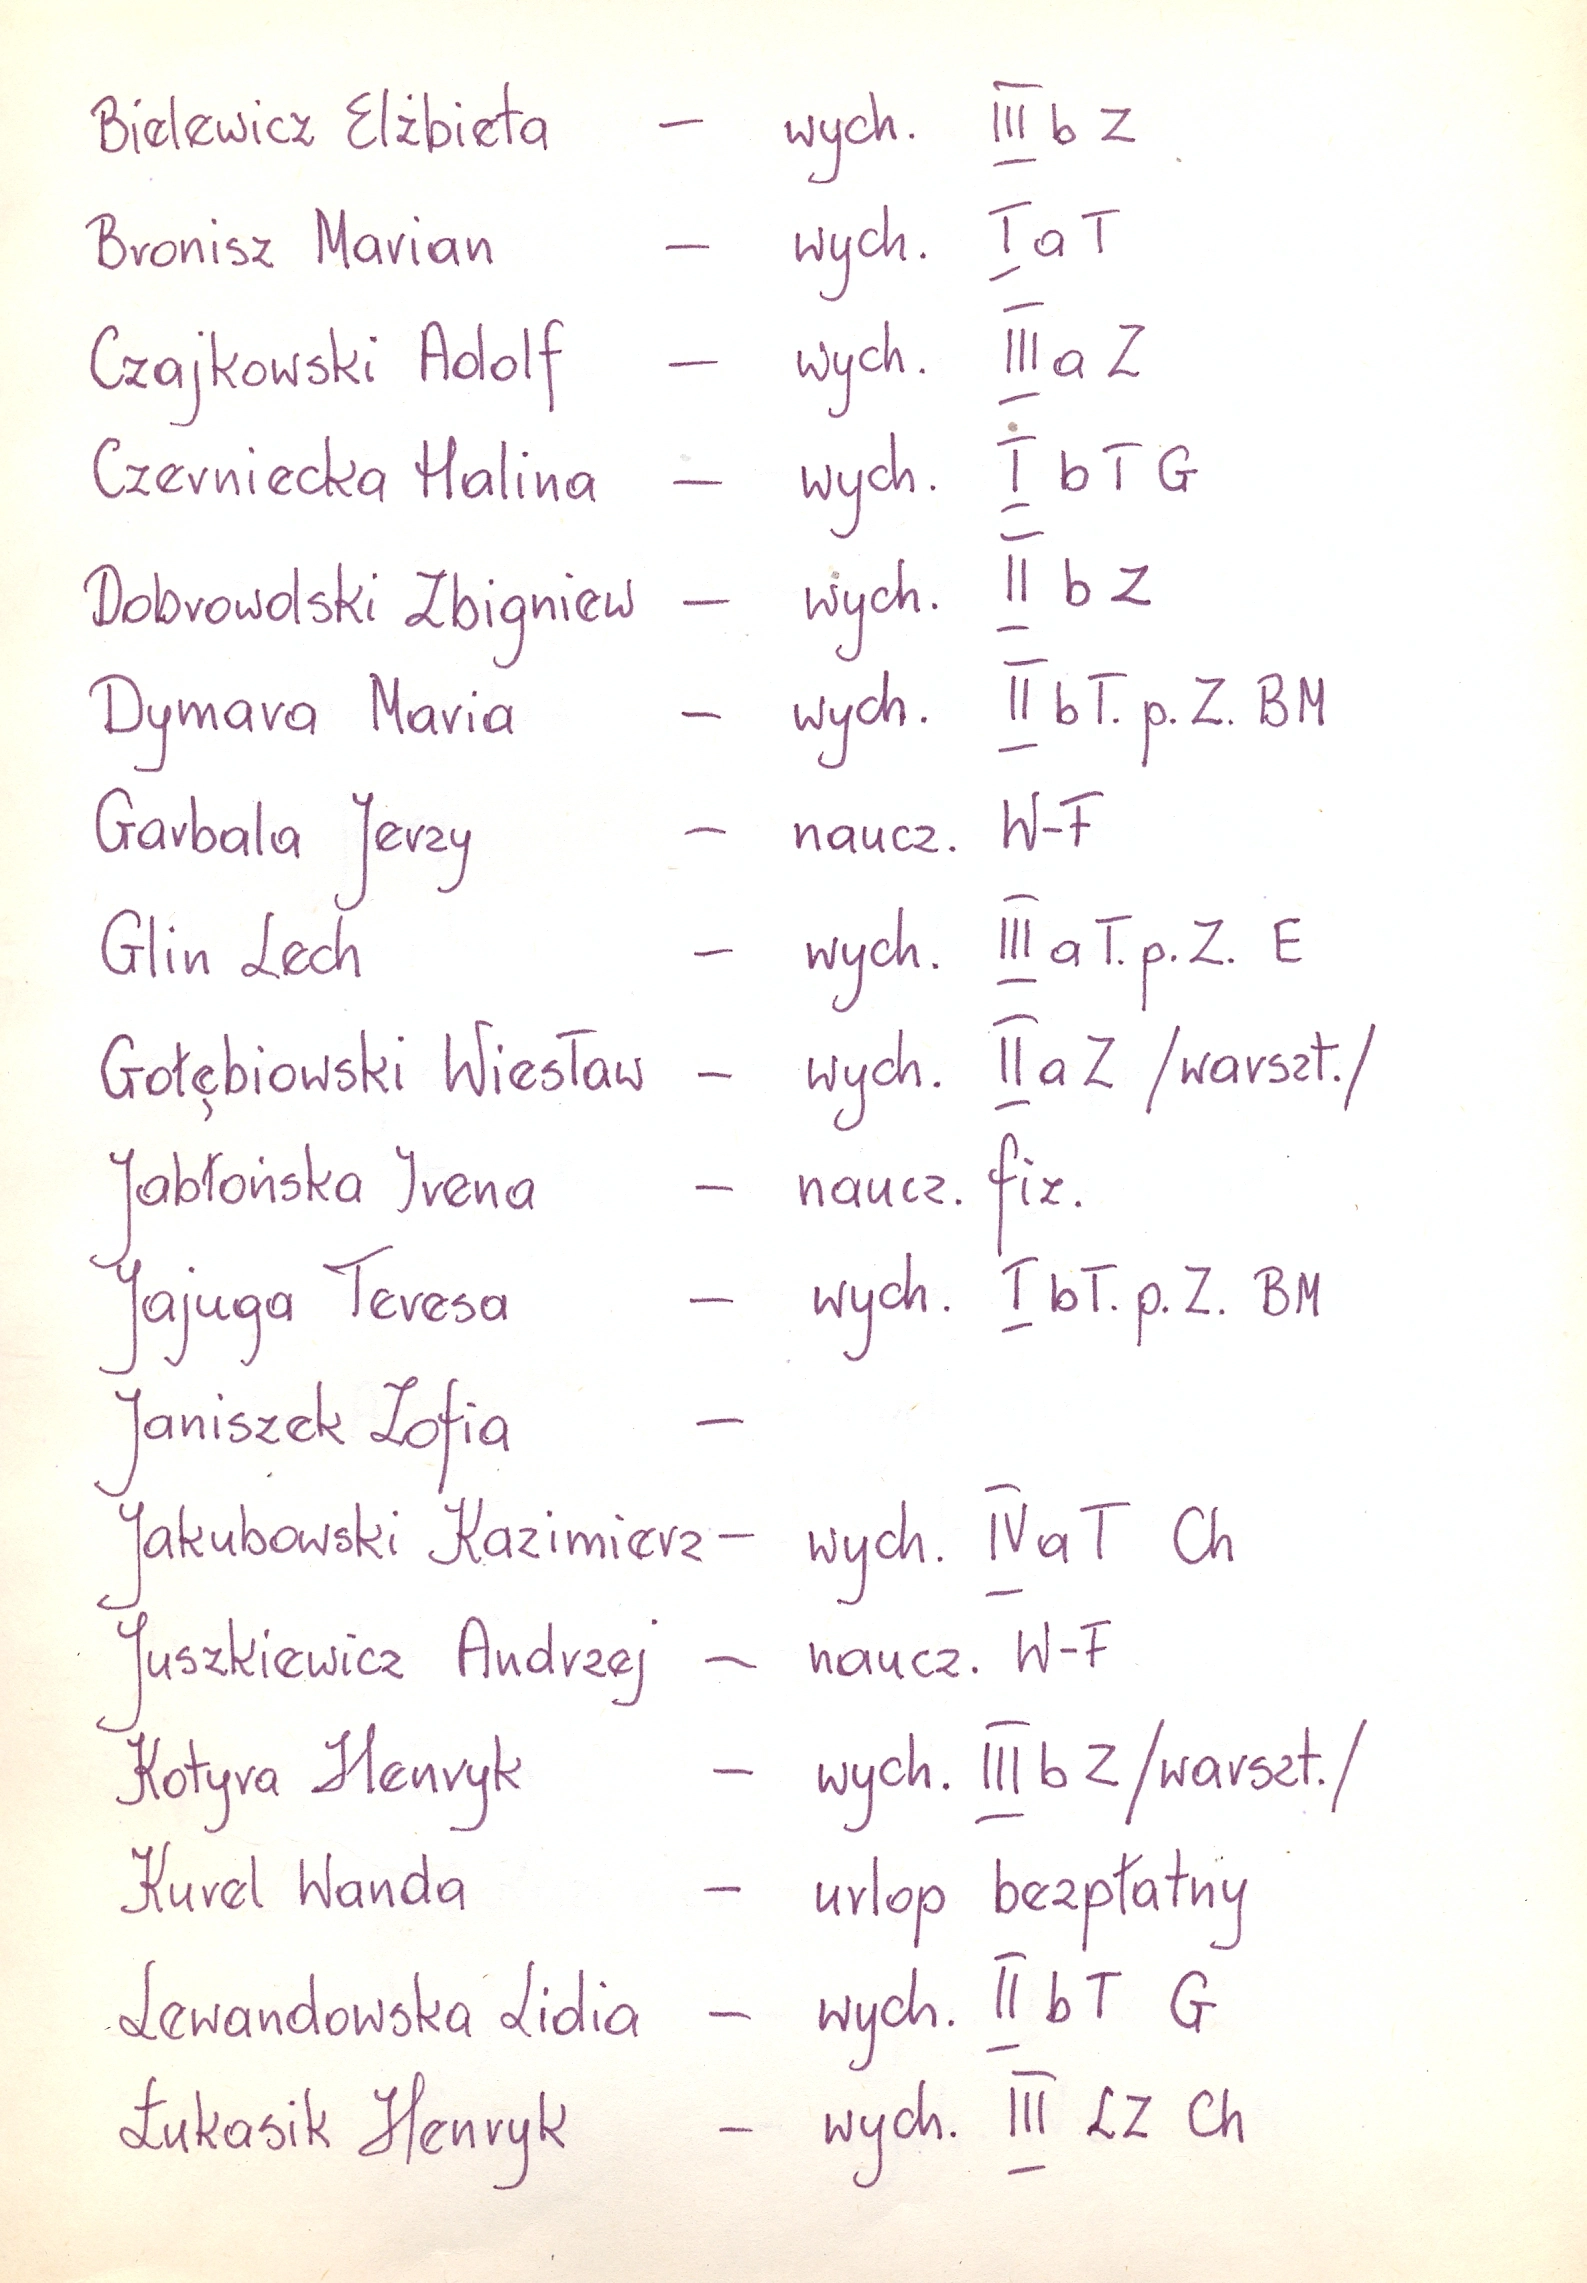 Bielewicz Elżbieta – wych. III b Z
Bronisz Marian – wych. I a T
Czajkowski Adolf – wych. III a Z
Czerniecka Halina – wych. I b T G
Dobrowolski Zbigniew – wych. II b Z
Dymara Maria – wych. II b T. p. Z. BM
Garbala Jerzy – naucz. W-F
Glin Lech – wych. III a T. p. Z. E
Gołębiowski Wiesław – wych. II a Z /warszt./
Jabłońska Irena – naucz. fiz.
Jajuga Teresa – wych. I b T. p. Z. BM
Janiszek Zofia –
Jakubowski Kazimierz – wych. IV a T Ch
Juszkiewicz Andrzej – naucz. W-F
Kotyra Henryk – wych. III b Z /warszt./
Kurel Wanda – urlop bezpłatny
Lewandowska Lidia – wych. II b T G
Łukasik Henryk – wych. III LZ Ch